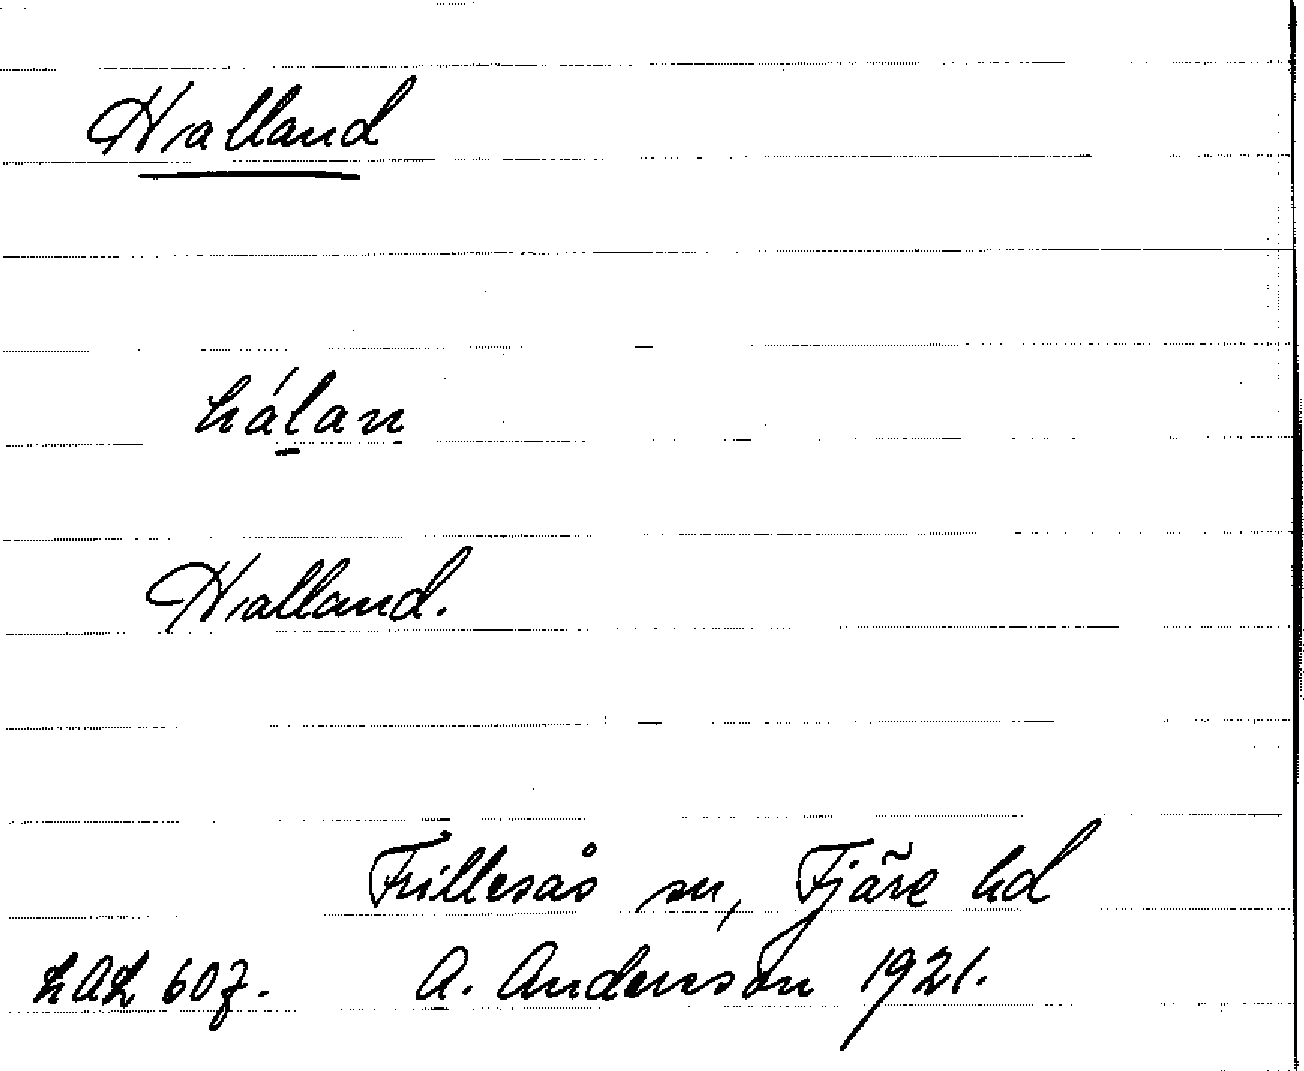 Halland
hálan
Halland.
Frillesås sn, Fjäre hd
LAL 607. A. Anderson 1921.